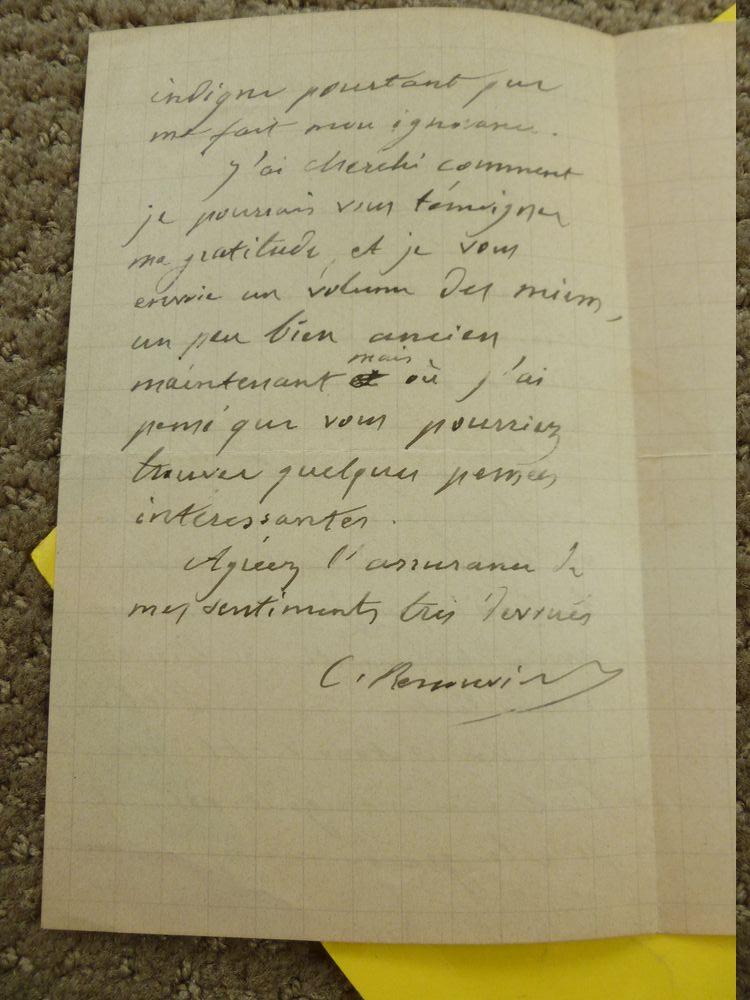 indigne pourtant que
me fait mon ignorance.
J'ai cherché comment
je pourrais vous témoigner
ma gratitude, et je vous
envoie un volume des miens,
un peu bien ancien
maintenant mais où j'ai
pensé que vous pourriez
trouver quelques pensées
intéressantes.
Agréez l'assurance de
mes sentiments très dévoués
C. Renouvier